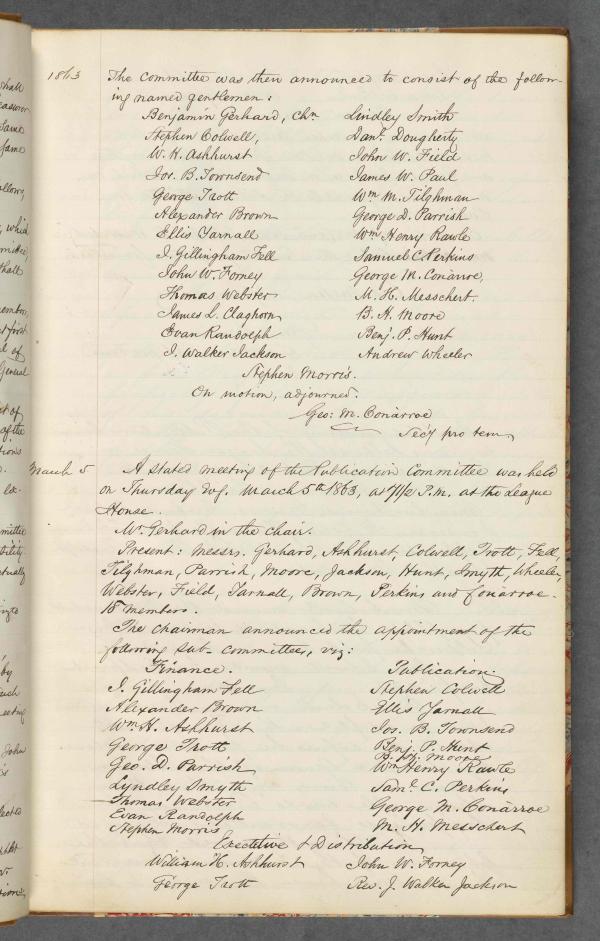 1863
The Committee was then announced to consist of the follow-
ing named gentlemen:
Benjamin Gerhard, Chn Lindley Smith
Stephen Colwell, Danl. Dougherty
W. H. Ashhurst John W. Field
Jos. B. Townsend James W. Paul
George Trott Wm. M. Tilghman
Alexander Brown George D. Parrish
Ellis Yarnall Wm Henry Rawle
J. Gillingham Fell Samuel C. Perkins
John W. Forney George M. Conarroe,
Thomas Webster M. H. Messchert
James L. Claghorn B. H. Moore
Evan Randolph Benj. P. Hunt
J. Walker Jackson Andrew Wheeler
Stephen Morris.
On motion, adjourned.
Geo: M. Conarroe
Secy pro tem
March 5 A stated meeting of the Publication Committee was held
on Thursday Evg. March 5th 1863, at 7 1/2 P.M. at the League
House.
Mr. Gerhard in the chair.
Present: Messrs. Gerhard, Ashhurst, Colwell, Trott, Fell,
Tilghman, Parrish, Moore, Jackson, Hunt, Smyth, Wheeler,
Webster, Field, Yarnall, Brown, Perkins and Conarroe.
18 members.
The Chairman announced the appointment of the
following Sub-Committees, viz:
Finance. Publication.
J. Gillingham Fell Stephen Colwell
Alexander Brown Ellis Yarnall
Wm H. Ashhurst Jos. B. Townsend
George Trott Benj. P. Hunt
B. H. Moore
Geo. D. Parrish Wm Henry Rawle
Lyndley Smyth Saml. C. Perkins
Thomas Webster George M. Conarroe
Evan Randolph
Stephen Morris M. H. Messchert
Executive & Distribution
William H. Ashhurst John W. Forney
George Trott Rev. J. Walker Jackson